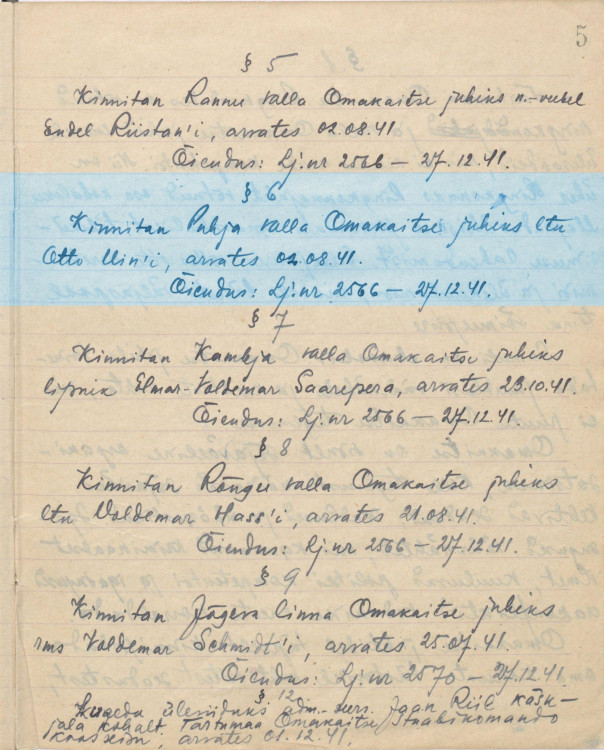 5
§ 5
Kinnitan Rannu valla Omakaitse juhiks n.-veebel
Endel Riistan'i, arvates 02.08.41.
Õiendus: Lj.nr 2566 — 27.12.41.
§ 6
Kinnitan Puhja valla Omakaitse juhiks ltn
Otto Uin'i, arvates 02.08.41.
Õiendus: Lj.nr 2566 — 27.12.41.
§ 7
Kinnitan Kambja valla Omakaitse juhiks
lipnik Elmar-Voldemar Saarepera, arvates 23.10.41.
Õiendus: Lj.nr 2566 — 27.12.41.
§ 8
Kinnitan Rõngu valla Omakaitse juhiks
ltn Voldemar Hass'i, arvates 21.08.41.
Õiendus: Lj.nr 2566 — 27.12.41.
§ 9
Kinnitan Jõgeva linna Omakaitse juhiks
rms Voldemar Schmidt'i, arvates 25.07.41.
Õiendus: Lj.nr 2570 — 27.12.41.
§ 12
ülesiduks adm.- Jaan Riil käsk-
jala kohalt Tartumaa Omakaitse Staabikomando
arvates 01.12.41.